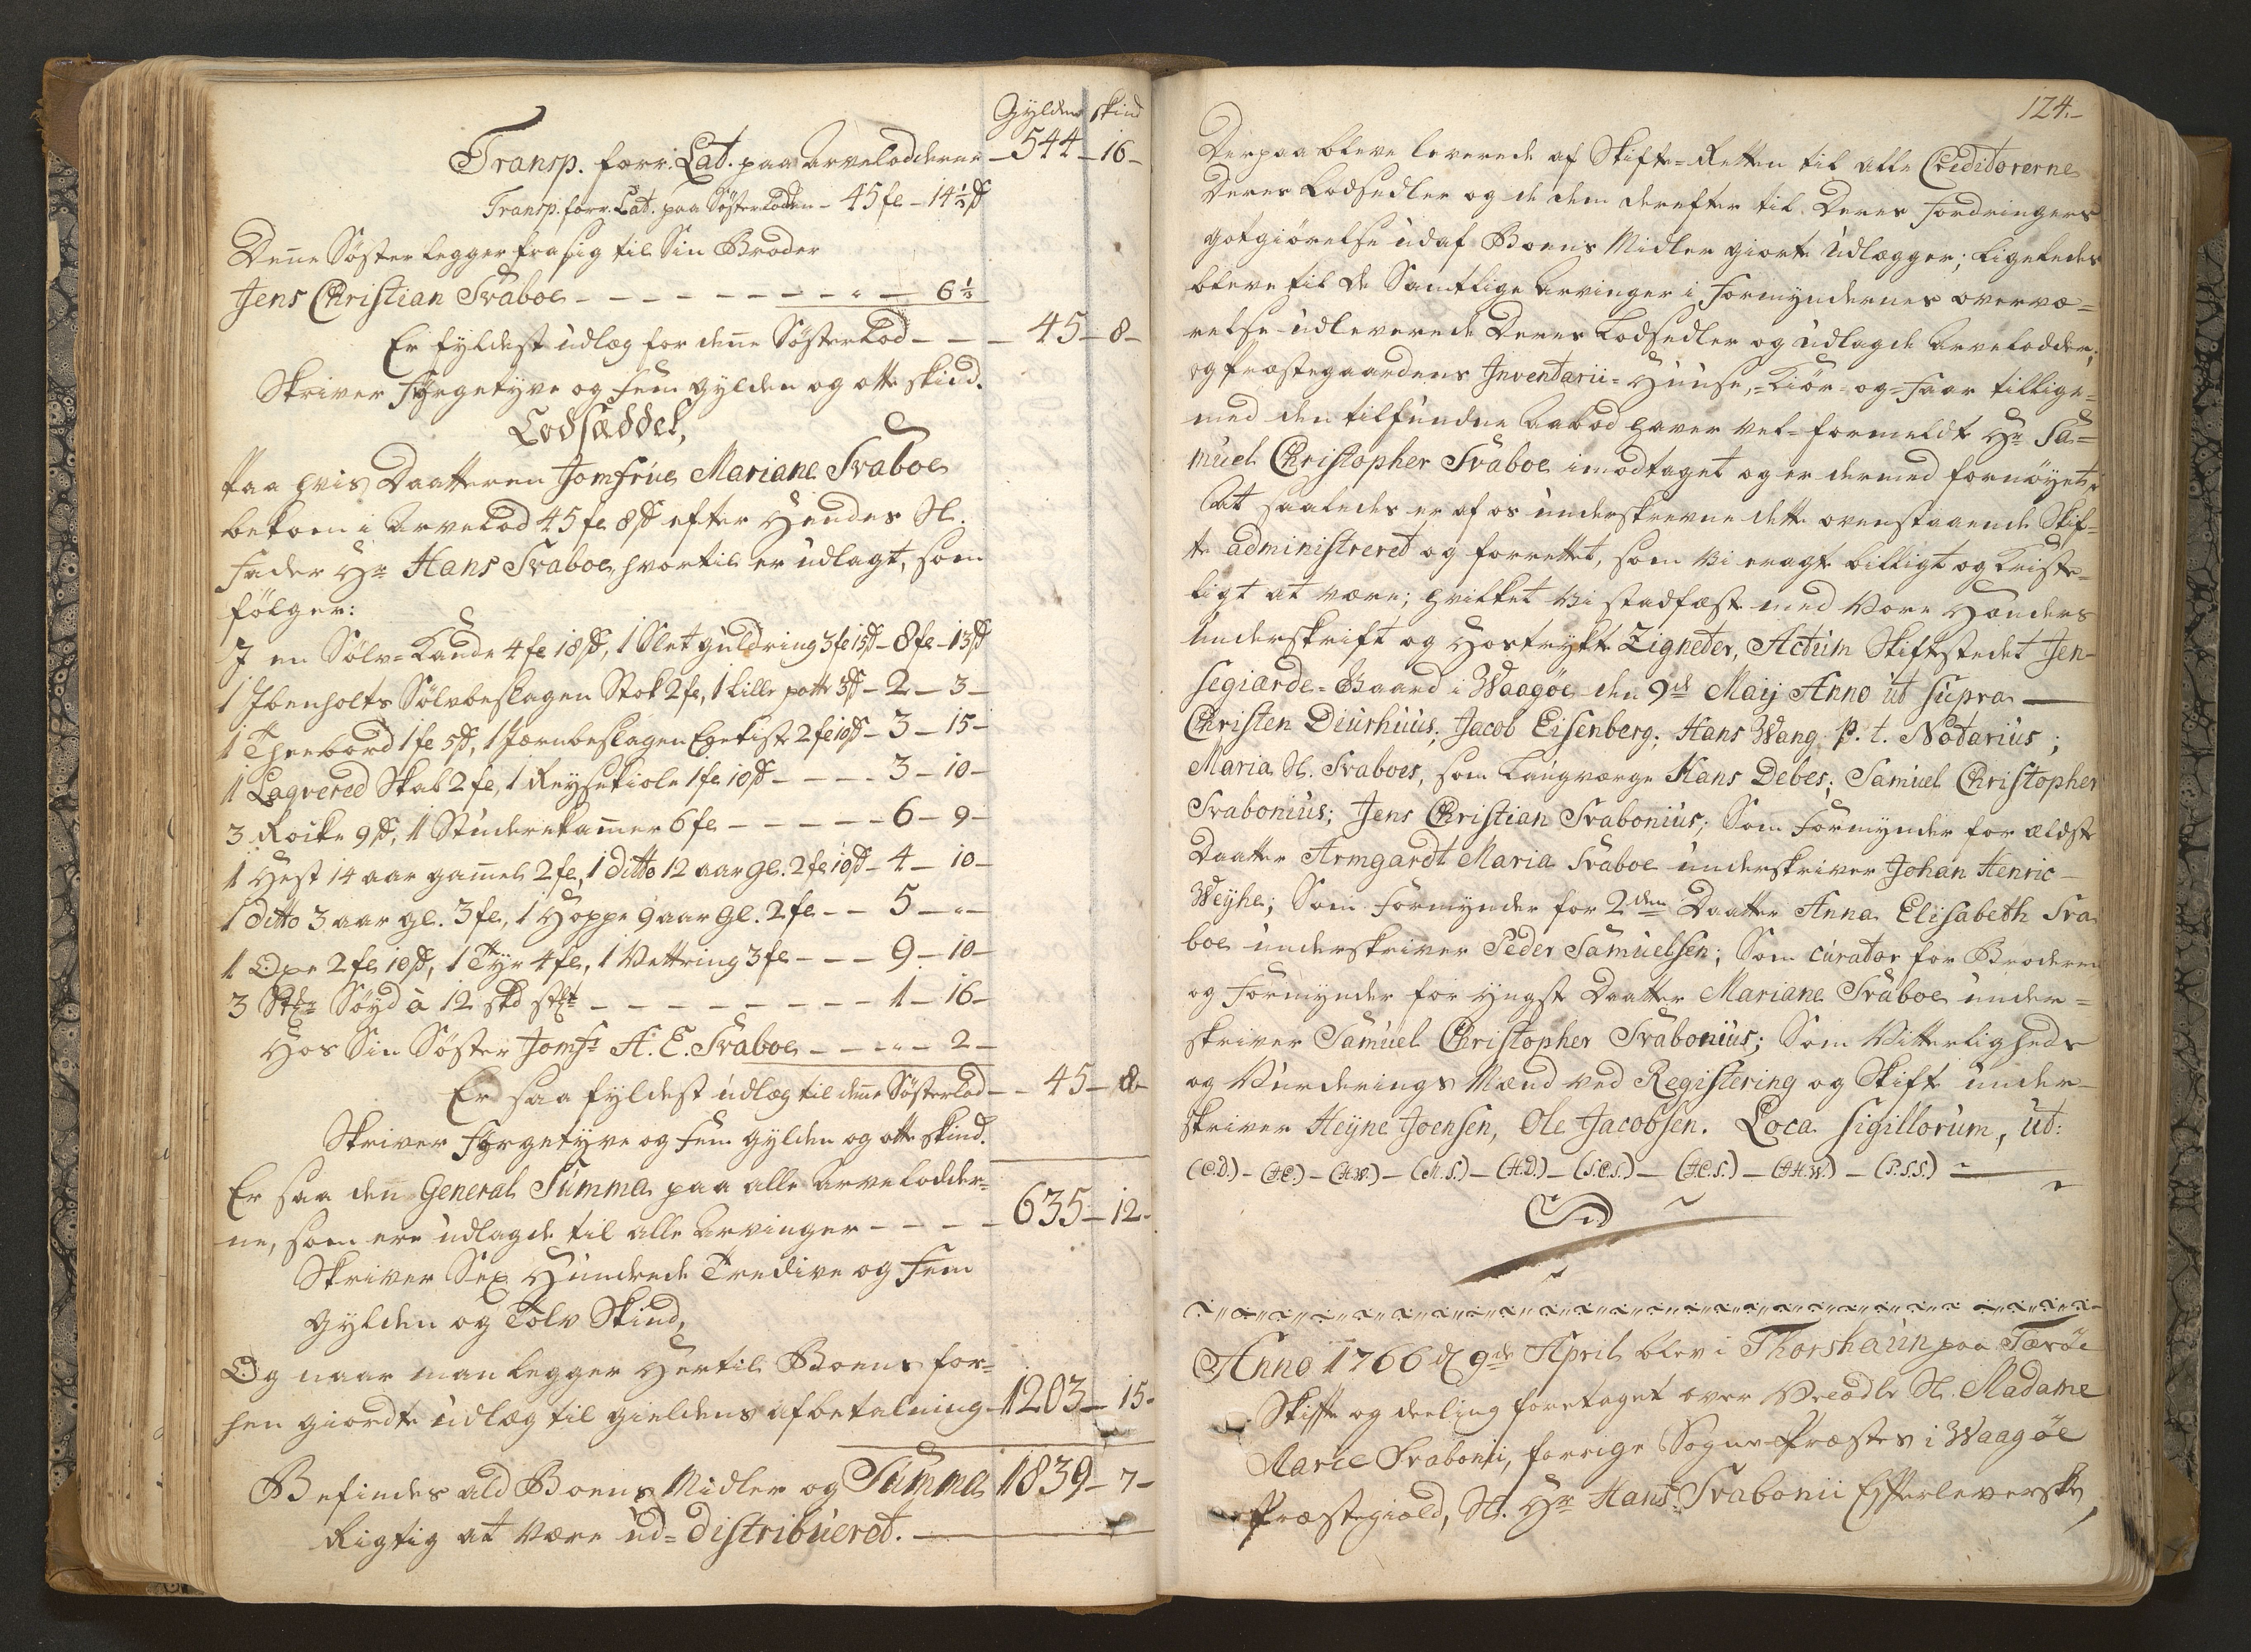 Gylden skind
Transp. forr. Lat. paa arvelodderne – 544 – 16 –
Transp. forr. Lat. paa Søsterlodden – 45 fe – 14½ ß
Den̄e Søster legger fra sig til Sin Broder
Jens Christian Svaboe – – – – – – – – " – 6½
Er fyldest udlæg for den̄e Søsterlod – – – 45 – 8 –
Skriver Fyrgetyve og fem gylden og otte skind.
Lodsæddel,
Paa hvis Daatteren Jomfrue Mariane Svaboe
bekom i Arvelod 45 fe 8 ß efter Hendes Sl.
Fader Hr Hans Svaboe, hvortil er udlagt, som
følger:
I en Sølv-Kande 4 fe 18 ß, 1 Slet guldring 3 fe 15 ß – 8 fe – 13 ß
1 Ibenholts Sølvbeslagen Stok 2 fe, 1 lille potte 3 ß – 2 – 3 –
1 Theebord 1 fe 5 ß, 1 Jærnbeslagen Egekiste 2 fe 10 ß – 3 – 15 –
1 Laqvered Skab 2 fe, 1 Reysekiole 1 fe 10 ß – – – – 3 – 10 –
3 Rocke 9 ß, 1 Studerekam̄er 6 fe – – – – – 6 – 9 –
1 Hest 14 aar gam̄el 2 fe, 1 ditto 12 aar gl. 2 fe 10 ß – 4 – 10 –
1 ditto 3 aar gl. 3 fe, 1 Hoppe 9 aar gl. 2 fe – – 5 – " –
1 Oxe 2 fe 10 ß, 1 Tyr 4 fe, 1 Vettring 3 fe – – – 9 – 10 –
3 Stkr Søyd à 12 skd stkt – – – – – – – – 1 – 16 –
Hos Sin Søster Jomfr A. E. Svaboe – – – " – 2 –
Er saa fyldest udlæg til den̄e Søsterlod – – 45 – 8 –
Skriver Fyrgetyve og fem gylden og otte skind.
Er saa den General Summa paa alle arvelodder-
ne, som ere udlagde til alle Arvinger – – – – 635 – 12 –
Skriver Sex Hundrede Tredive og Fem
gylden og Tolv Skind,
Og naar man legger Hertil Boens for-
hen giordte udlæg til gieldens afbetalning – 1203 – 15 –
Befindes ald Boens Midler og Summa 1839 – 7 –
Rigtig at være ud-distribueret. –
124. –
Derpaa bleve leverede af Skifte-Retten til alle Creditorerne
Deres Lodsedler og de dem derefter til Deres Fordringers
gotgiørelse udaf Boens Midler giorte Udlægger; ligeledes
bleve til de Samtlige Arvinger i Formyndernes overvæ-
relse udleverede Deres Lodsedler og udlagde Arvelodder;
og Præstegaardens Inventarii-Huuse,-Kiør-og-Faar tillige-
med den tilfundne Aabod haver vel-formeldte Hr Sa-
muel Christopher Svaboe imodtaget og er dermed fornøyet;
At saaledes er af os underskrevne dette ovenstaaende Skif-
te administreret og forrettet, som vi eragte billigt og Christe-
ligt at være; hvilket vi stadfæste med Vore Hænders
Underskrift og Hostrykte Zigneter, Actum Skiftestedet Jen-
segiarde-Gaard i Waagøe den 9de Maij Anno ut supra –
Christen Diurhuus; Jacob Eisenberg; Hans Wang p. t. Notarius;
Maria Sl. Svaboes, som Laugværge Hans Debes; Samuel Christopher
Svabonius; Jens Christian Svabonius; Som Formynder for ældste
Daatter Armgardt Maria Svaboe underskriver Johan Henric –
Weyhe; Som Formynder for 2den Daatter Anna Elisabeth Sva
boe underskriver Peder Samuelsen; Som curator for Broderen
og Formynder for yngste Daatter Mariane Svaboe under-
skriver Samuel Christopher Svabonius; Som Vitterligheds
og Vurderings Mænd ved Registering og Skifte under-
skriver Heyne Joensen, Ole Jacobsen. Loca Sigillorum, ut:
(C.D.) – (J.E.) – (H.W.) – (M.S.) – (H.D.) – (S.C.S.) – (J.C.S.) – (J.H.W.) – (P.S.S.) –
End
Anno 1766 d 9de April blev i Thorshaun paa Færøe
Skifte og deeling foretaget over Velædle Sl. Madame
Marie Svabonii, forrige Sogne-Præstes i Waagøe
Præstegield, Sl. Hr Hans Svabonii Efterleverske,